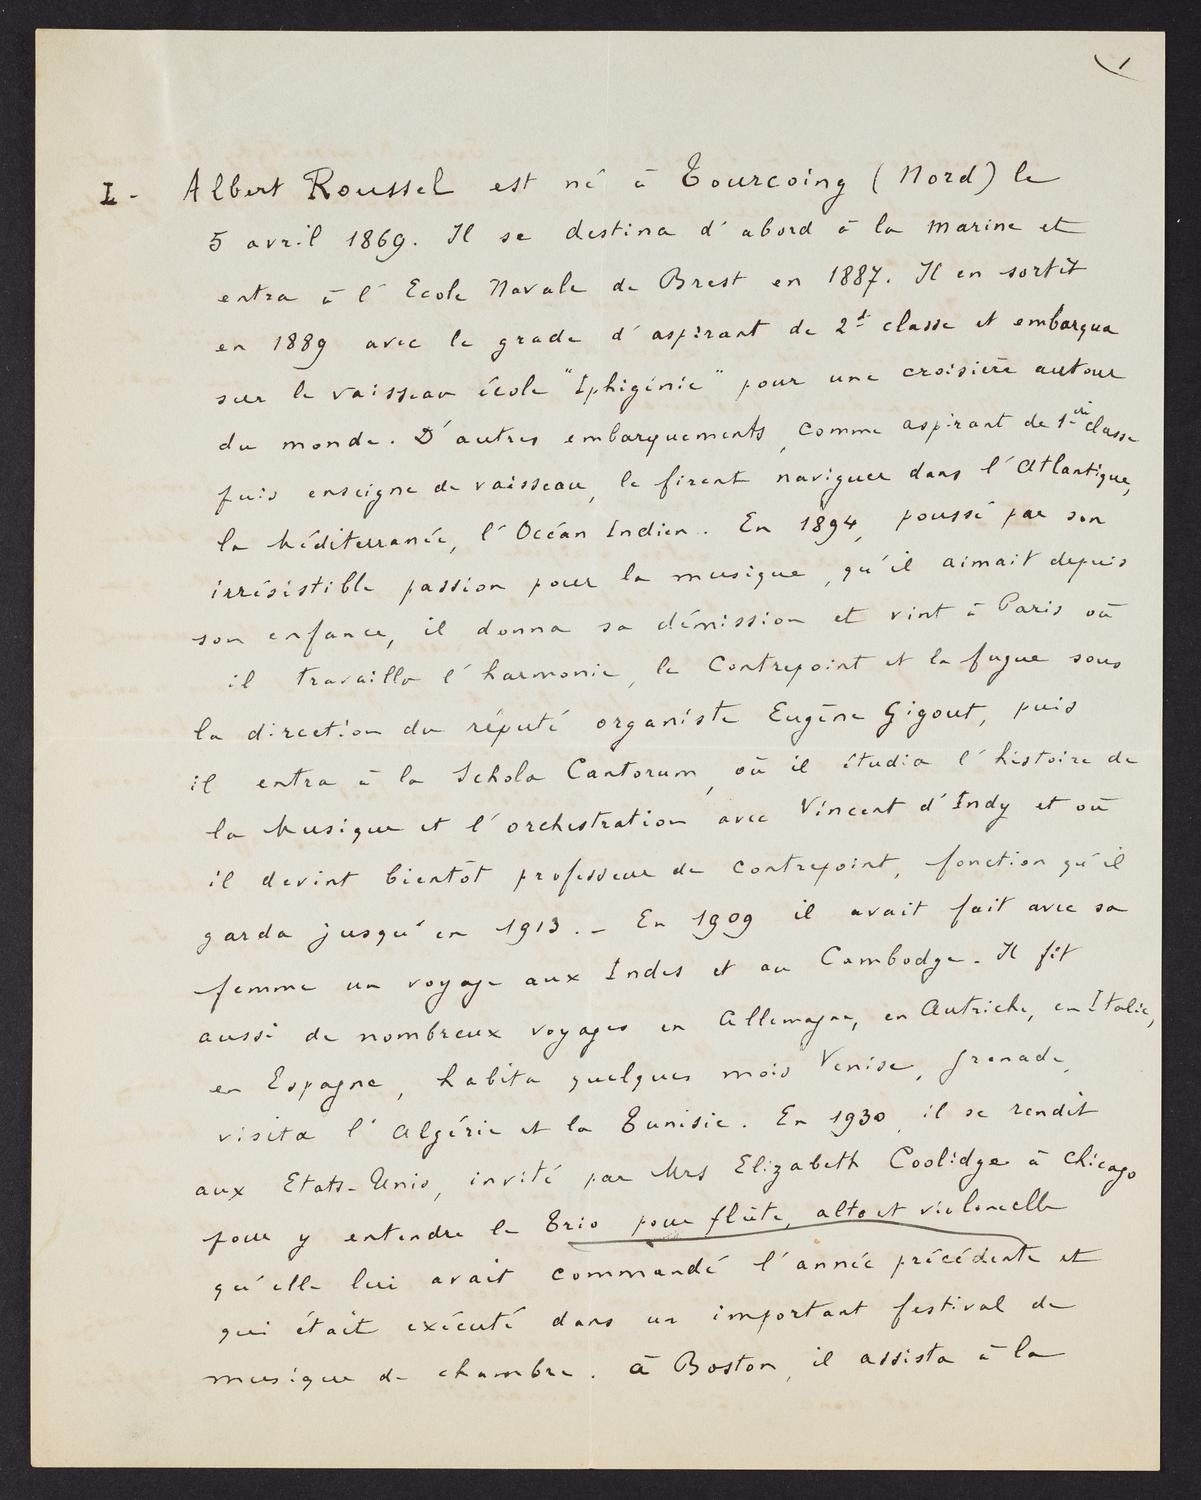 1
I - Albert Roussel est né à Tourcoing (Nord) le
5 avril 1869. Il se destina d'abord à la marine et
entra à l'Ecole Navale de Brest en 1887. Il en sortit
en 1889 avec le grade d'aspirant de 2d classe et embarqua
sur le vaisseau école "Iphigénie" pour une croisière autour
du monde. D'autres embarquements, comme aspirant de 1ère classe
puis enseigne de vaisseau, le firent naviguer dans l'Atlantique,
la Méditerranée, l'Océan Indien. En 1894, poussé par son
irrésistible passion pour la musique, qu'il aimait depuis
son enfance, il donna sa démission et vint à Paris où
il travailla l'harmonie, le Contrepoint et la fugue sous
la direction du réputé organiste Eugène Gigout, puis
il entra à la Schola Cantorum, où il étudia l'histoire de
la Musique et l'orchestration avec Vincent d'Indy et où
il devint bientôt professeur de contrepoint, fonction qu'il
garda jusqu'en 1913. - En 1909 il avait fait avec sa
femme un voyage aux Indes et au Cambodge. Il fit
aussi de nombreux voyages en Allemagne, en Autriche, en Italie,
en Espagne, habita quelques mois Venise, Grenade,
visita l'Algérie et la Tunisie. En 1930, il se rendit
aux Etats-Unis, invité par Mrs Elizabeth Coolidge à Chicago
pour y entendre le Trio pour flûte, alto et violoncelle
qu'elle lui avait commandé l'année précédente et
qui était exécuté dans un important festival de
musique de chambre. à Boston, il assista à la